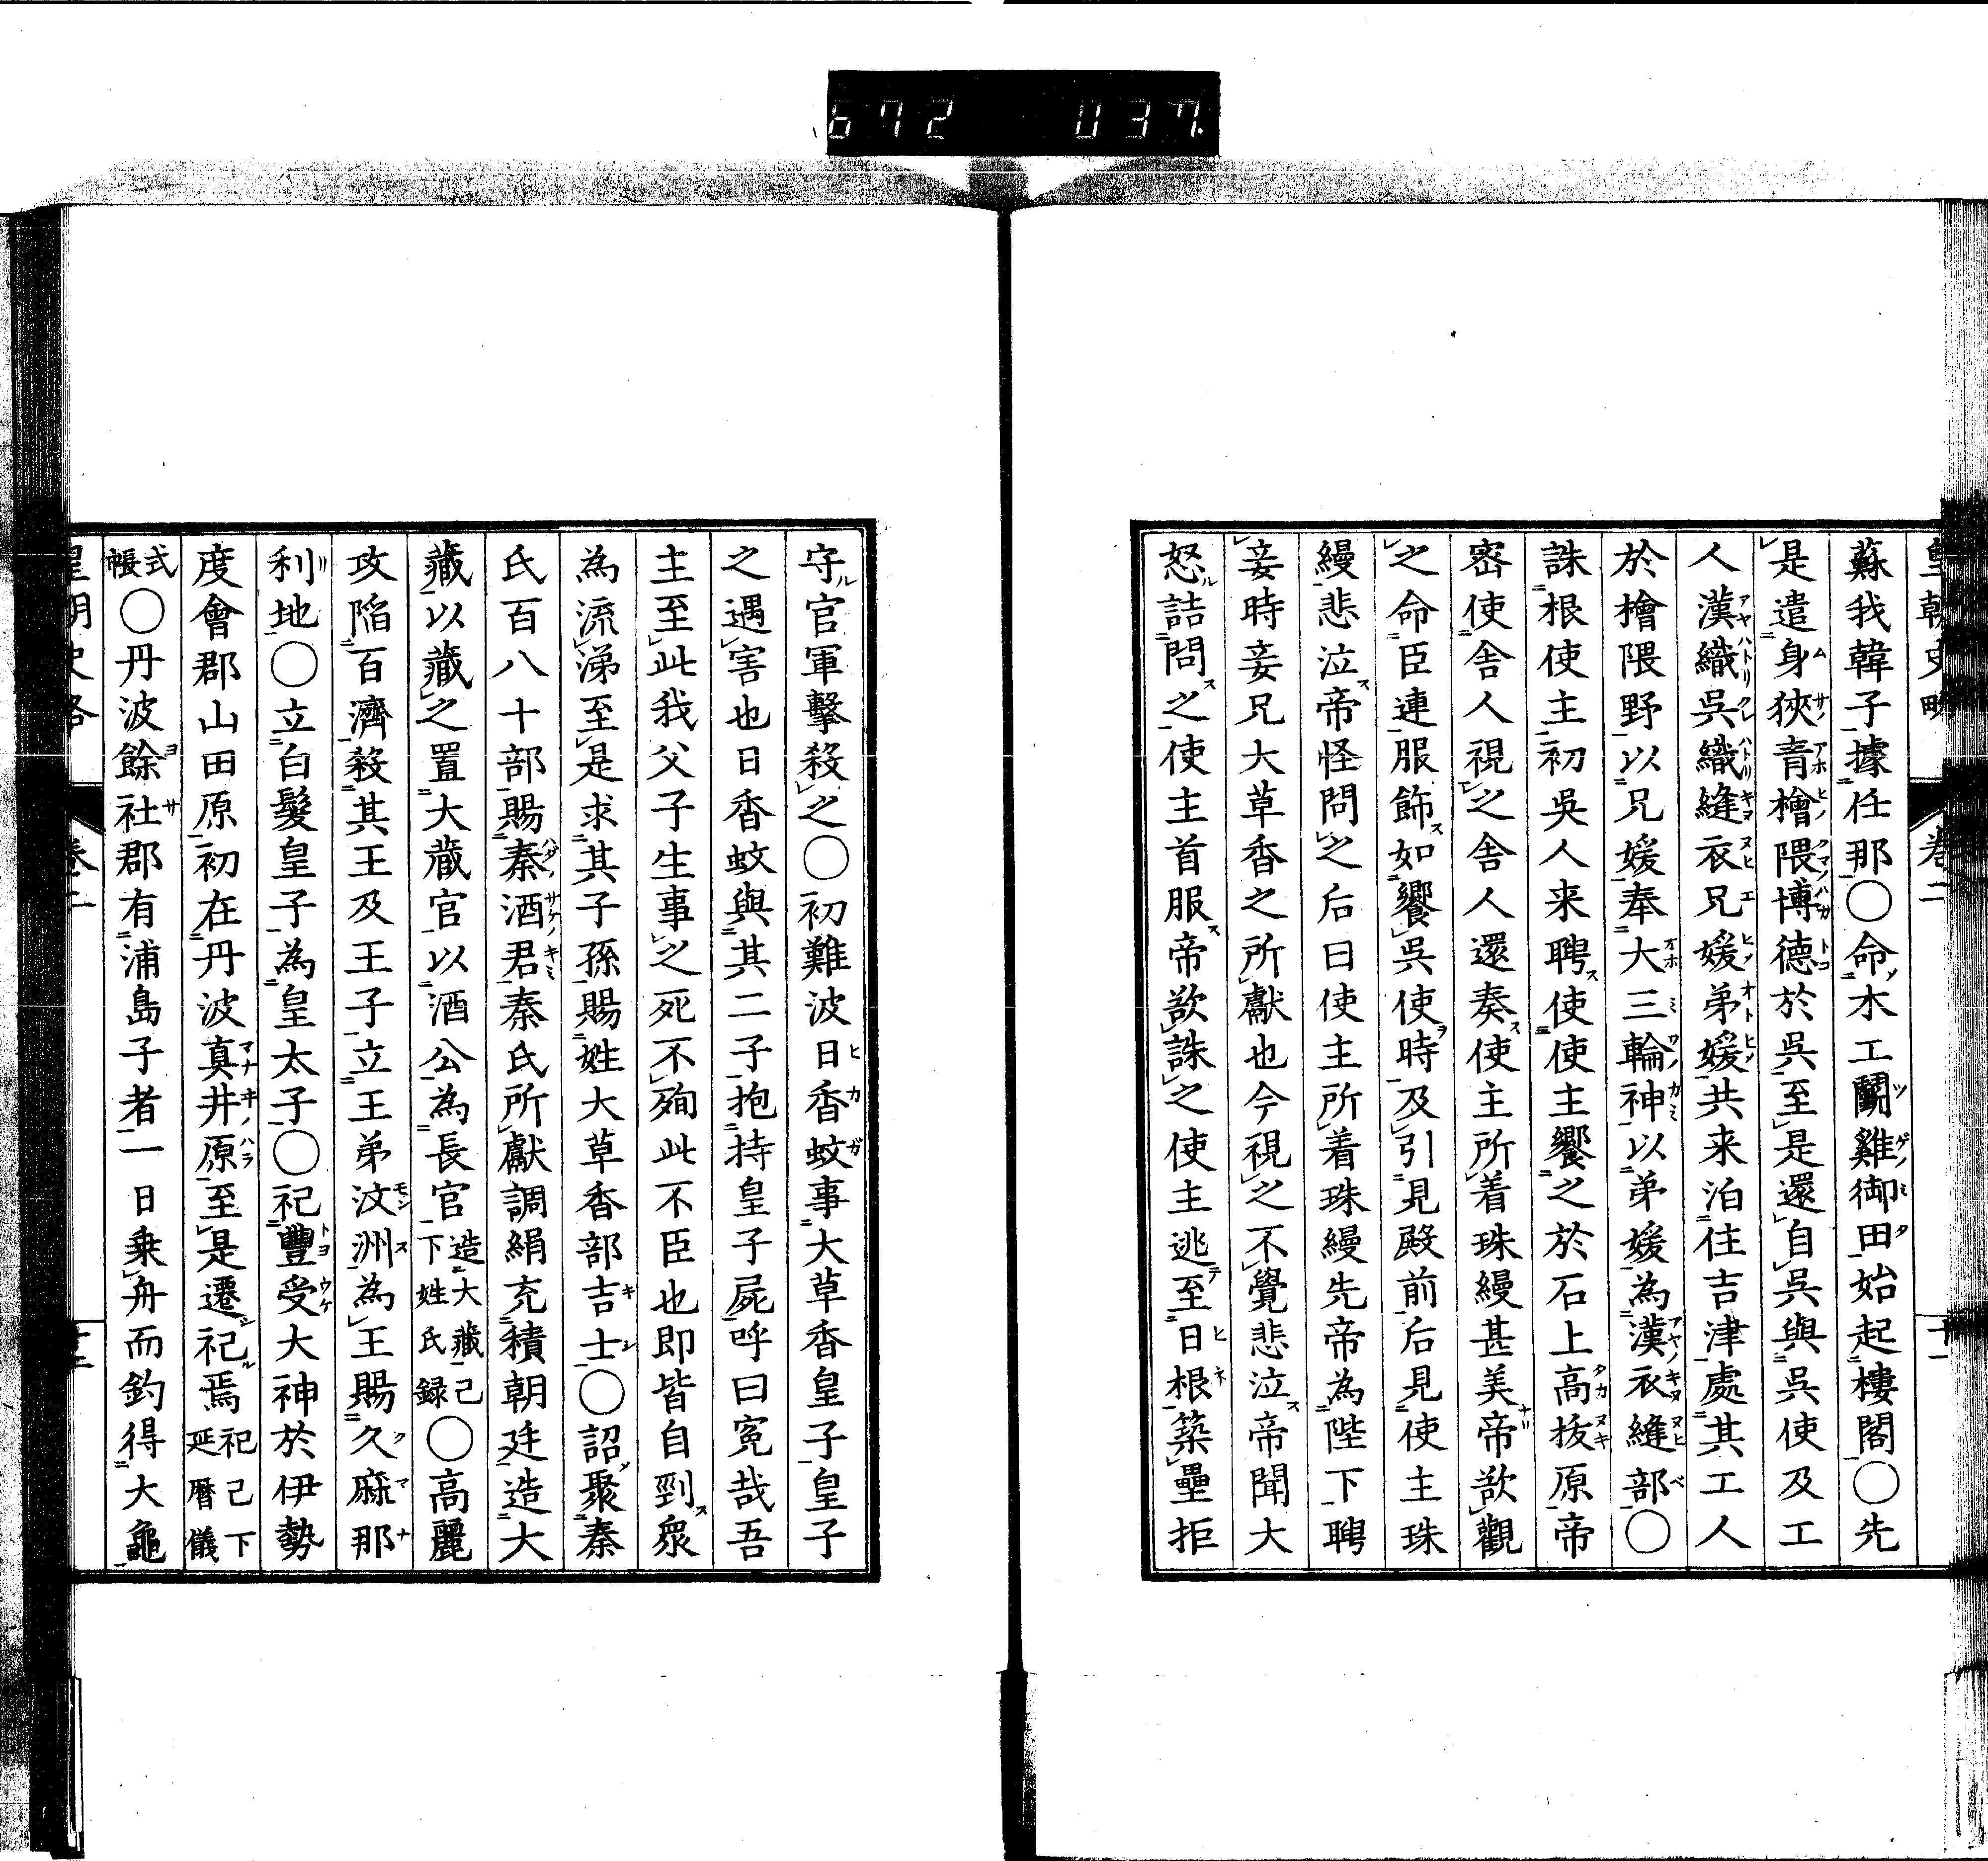 672 037.
皇朝史略 卷二 十一
蘇我韓子據任那○命木工鬭雞御田始起樓閣○先
是遣身狹青檜隈博德於吳至是還自吳與吳使及工
人漢織吳織縫衣兄媛弟媛共来泊住吉津處其工人
於檜隈野以兄媛奉大三輪神以弟媛為漢衣縫部○
誅根使主初吳人来聘使使主饗之於石上高拔原帝
密使舍人視之舍人還奏使主所着珠縵甚美帝欲觀
之命臣連服飾如饗吳使時及引見殿前后見使主珠
縵悲泣帝怪問之后曰使主所着珠縵先帝為陛下聘
妾時妾兄大草香之所獻也今視之不覺悲泣帝聞大
怒詰問之使主首服帝欲誅之使主逃至日根築壘拒
守官軍擊殺之○初難波日香蚊事大草香皇子皇子
之遇害也日香蚊與其二子抱持皇子屍呼曰冤哉吾
主至此我父子生事之死不殉此不臣也即皆自剄衆
為流涕至是求其子孫賜姓大草香部吉士○詔聚秦
氏百八十部賜秦酒君秦氏所獻調絹充積朝廷造大
藏以藏之置大藏官以酒公為長官造大藏己下姓氏録○高麗
攻陷百濟殺其王及王子立王弟汶洲為王賜久麻那
利地○立白髮皇子為皇太子○祀豐受大神於伊勢
度會郡山田原初在丹波真井原至是遷祀焉祀己下延曆儀
式帳○丹波餘社郡有浦島子者一日乗舟而釣得大龜
皇朝史略 卷二